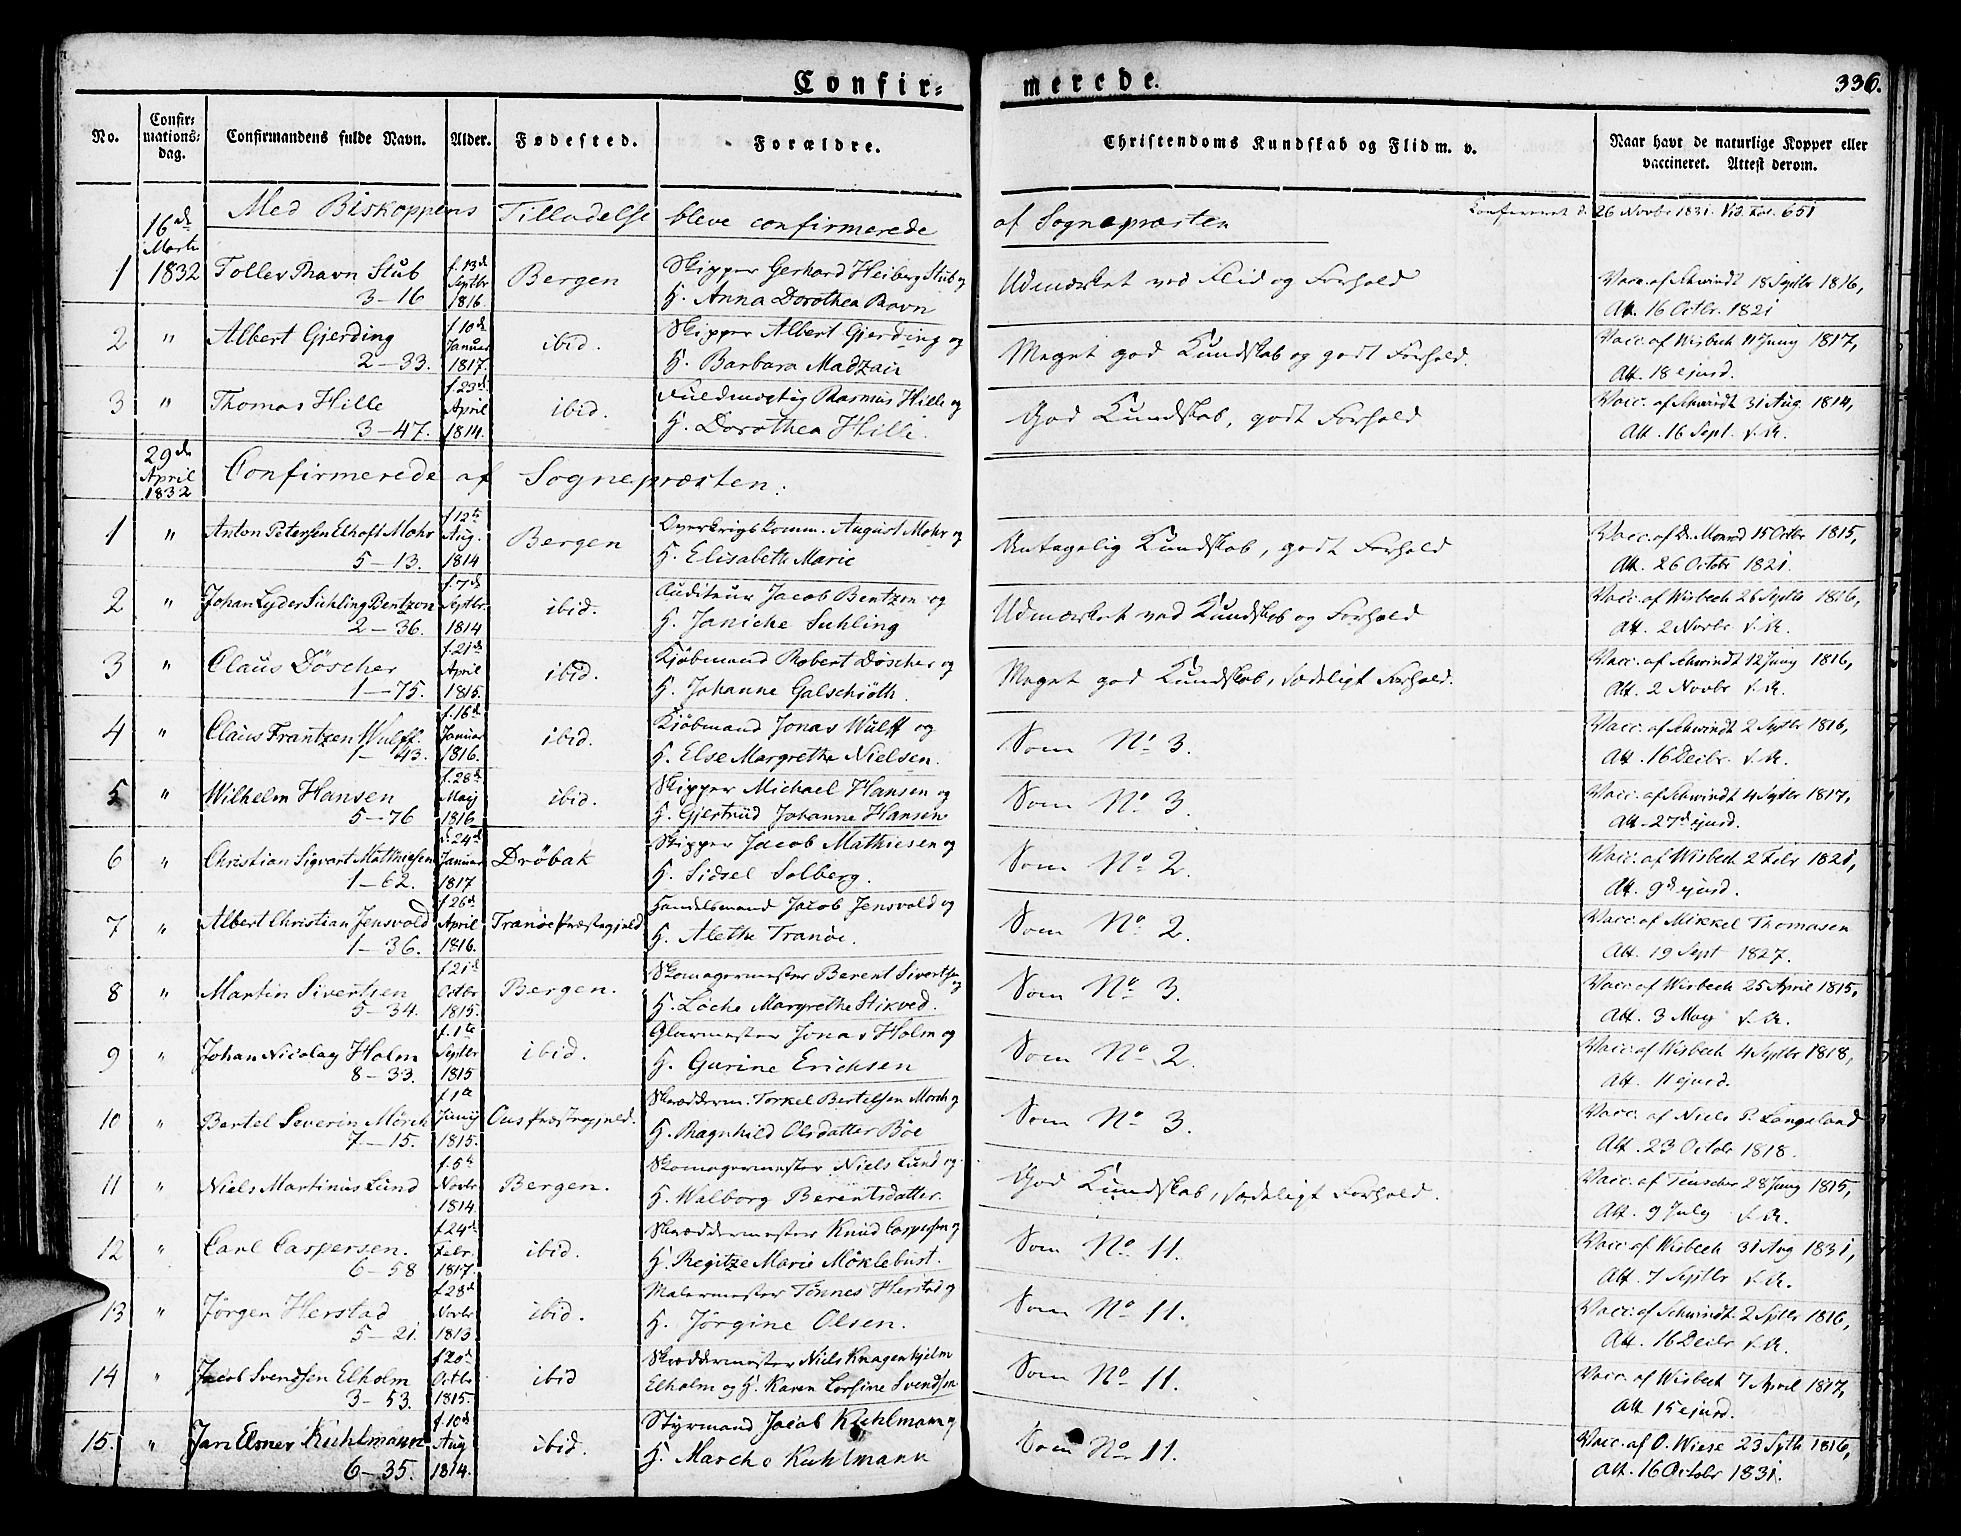 Confir=merede.
336.
No.
Confirmationsdag.
Confirmandens fulde Navn.
Alder.
Fødested.
Forældre.
Christendoms Kundskab og Flid m. v.
Naar havt de naturlige Kopper eller vaccineret. Attest derom.
16de Marts 1832
Med Biskoppens Tilladelse bleve confirmerede af Sognepræsten
Confirmeret d. 26 Novbr 1831. Vid. Fol. 651
1 Tollev Ravn Stub 3-16 f. 13de Septbr 1816. Bergen
Skipper Gerhard Heiberg Stub og
H. Anna Dorothea Ravn
Udmærket ved Flid og Forhold
Vacc. af Schwindt 18 Septbr 1816,
Att. 16 Octbr. 1821
2 " Albert Gjerding 2-33. f. 10de Januar 1817. ibid.
Skipper Albert Gjerding og
H. Barbara Madzair
Meget god Kundskab og godt Forhold.
Vacc. af Wisbech 11 Juny 1817,
Att. 18 ejusd.
3 " Thomas Hille 3-47. f. 23de April 1814. ibid.
Fuldmægtig Rasmus Hille og
H. Dorothea Hille.
God Kundskab, godt Forhold
Vacc. af Schwindt 31 Aug. 1814,
Att. 16 Sept. s. A.
29de April 1832
Confirmerede af Sognepræsten:
1 " Anton Petersen Elhoft Mohr 5-13. f. 12te Aug. 1814 Bergen
Overkrigskomm. August Mohr og
H. Elisabeth Marie
Antagelig Kundskab, godt Forhold
Vacc. af Dr. Monrad 15 Octbr 1815,
Att. 26 Octobr 1821.
2 " Johan Lyder Suhling Bentzon 2-36. f. 7de Septbr. 1814 ibid.
Auditeur Jacob Bentzon og
H. Janiche Suhling
Udmærket ved Kundskab og Forhold
Vacc. af Wisbech 26 Septbr 1816,
Att. 2 Novbr s. A.
3 " Claus Döscher 1-75. f. 21de April 1815. ibid.
Kjöbmand Robert Döscher og
H. Johanne Galschiöth.
Meget god Kundskab, sædeligt Forhold.
Vacc. af Schwindt 12 Juny 1816,
Att. 2 Novbr s. A.
4 " Claus Frantzen Wulff. 1-43. f. 16de Januar 1816. ibid.
Kjöbmand Jonas Wulff og
H. Else Margrethe Nielsen.
Som No. 3.
Vacc. af Schwindt 2 Septbr 1816,
Att. 16 Decbr. s. A.
5 " Wilhelm Hansen 5-76 f. 28de Maij 1816. ibid.
Skipper Michael Hansen og
H. Gjertrüd Johanne Hansen
Som No. 3.
Vacc. af Schwindt 4 Septbr 1817,
Att. 27de ejusd.
6 " Christian Sigvart Matthiesen 1-62. d. 24de Januar 1817 Dröbak
Skipper Jacob Mathiesen og
H. Sidsel Solberg.
Som No. 2.
Vacc. af Wisbech 2 Febr 1821,
Att. 9de ejusd.
7 " Albert Christian Jensvold 1-36. f. 26de April 1816. Tranöe Præstegjeld
Handelsmand Jacob Jensvold og
H. Alethe Tranöe.
Som No. 2.
Vacc. af Mikkel Thomasen
Att. 19 Sept 1827.
8 " Martin Sivertsen 5-34. f. 21de Octbr 1815. Bergen.
Skomagermester Berent Sivertsen og
H. Löche Margrethe Stikved.
Som No. 3.
Vacc. af Wisbech 25 April 1815,
Att. 3 May s. A.
9 " Johan Nicolay Holm 8-33. f. 1te Septbr 1815 ibid.
Glarmester Jonas Holm og
H. Gurine Erichsen
Som No. 2.
Vacc. af Wisbech 4 Septbr 1818,
Att. 11 ejusd.
10 " Bertel Severin Mörch 7-15. f. 1te Junij 1815. Ous Præstegjeld.
Skrædderm. Torkel Bertelsen Mörch og
H. Ragnhild Olsdatter Böe
Som No. 3.
Vacc. af Niels P. Langeland
Att. 23 Octobr 1818.
11 " Niels Martinus Lund f. 5te Novbr 1814. Bergen.
Skomagermester Niels Lund og
H. Walborg Berentsdatter.
God Kundskab, sædeligt Forhold.
Vacc. af Tuscher 28 Juny 1815,
Att. 9 July s. A.
12 " Carl Caspersen. 6-58 f. 24de Febr. 1817. ibid.
Skræddermester Knud Caspersen og
H. Regitze Marie Möklebust.
Som No. 11.
Vacc. af Wisbech 31 Aug 1831,
Att. 7 Septbr s. A.
13 " Jörgen Herstad 5-21. f. 28de Novbr 1813. ibid.
Malermester Tönnes Herstad og
H. Jörgine Olsen.
Som No. 11.
Vacc. af Schwindt 2 Sptbr 1816,
Att. 16 Decbr s. A.
14 " Jacob Svendsen Elholm 3-53. f. 20de Octbr 1815. ibid
Skræddermester Niels Knagenhjelm
Elholm og H. Karen Lorsine Svendsen
Som No. 11.
Vacc. af Wisbech 7 April 1817,
Att 15 ejusd.
15. " Jan Elsner Kuhlmann 6-35. f. 10de Aug 1814. ibid.
Styrmand Jacob Kuhlmann og
H. Marche Kuhlmann
Som No. 11.
Vacc. af O. Wiese 23 Septb 1816,
Att. 16 October 1831.